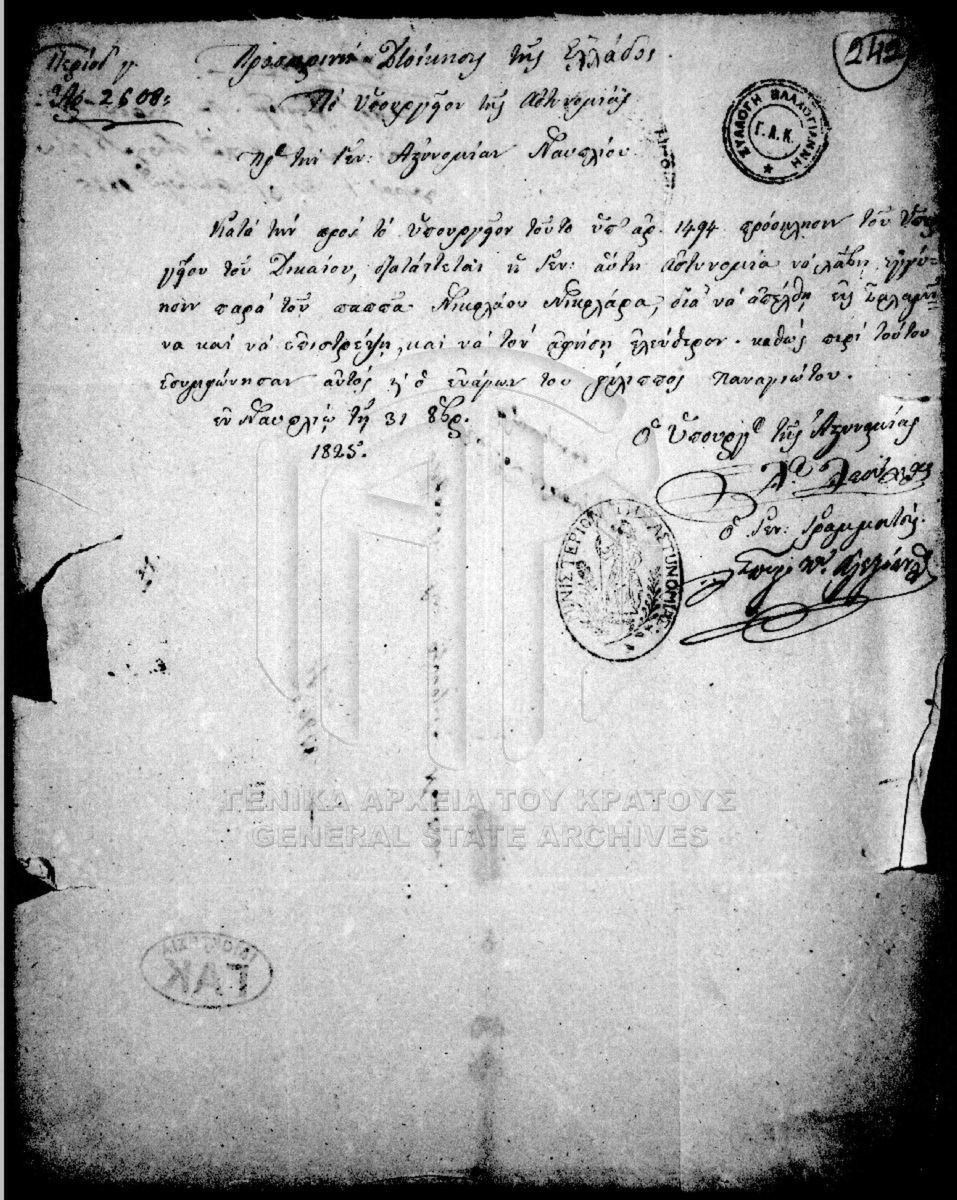 Περίοδ γ.
Ἀρ. 2608:
Προσωρινὴ Διοίκησις τῆς Ἑλλάδος.
Τὸ Ὑπουργεῖον τῆς Ἀστυνομίας
Πρὸς τὴν Γεν: Ἀστυνομίαν Ναυπλίου
242
ΣΥΛΛΟΓΗ ΒΛΑΧΟΓΙΑΝΝΗ
Γ.Α.Κ.
Κατὰ τὴν πρὸς τὸ Ὑπουργεῖον τοῦτο ὑπ' ἀρ. 1494 πρόσκλησιν τοῦ Ὑπουρ
γείου τοῦ Δικαίου, διατάττεται ἡ Γεν: αὕτη Ἀστυνομία νὰ λάβῃ ἐγγύ-
ησιν παρὰ τοῦ παππᾶ Νικολάου, διὰ νὰ ἀπέλθῃ εἰς
να καὶ νὰ ἐπιστρέψῃ, καὶ νὰ τὸν ἀφήσῃ ἐλεύθερον. καθὼς περὶ τούτου
ἐσυμφώνησαν αὐτὸς κ ὁ ἐνάγων τον φίλιππος Παναγιώτου.
ἐν Ναυπλίῳ τῇ 31 8βρ.
1825.
Ὁ Ὑπουργὸς τῆς Ἀστυνομίας
ὁ Γεν: Γραμματεὺς.
ΜΙΝΙΣΤΕΡΙΟΝ ΤΗΣ ΑΣΤΥΝΟΜΙΑΣ
ΓΕΝΙΚΑ ΑΡΧΕΙΑ ΤΟΥ ΚΡΑΤΟΥΣ
GENERAL STATE ARCHIVES
ΓΑΚ